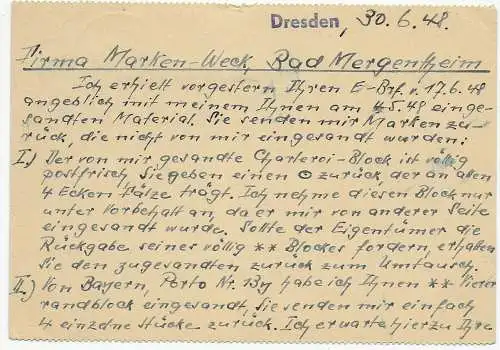 Dresden, 30.6.48.
Firma Marken-Weck, Bad Mergentheim
Ich erhielt vorgestern Ihren E-Brf. v. 17.6.48
angeblich mit meinem Ihnen am 4.5.48 einge-
sandten Material. Sie senden mir Marken zu-
rück, die nicht von mir eingesandt wurden:
I.) Der von mir gesandte Charleroi-Block ist völlig
postfrisch, Sie geben einen ⊙ zurück, der an allen
4 Ecken Fälze trägt. Ich nehme diesen Block nur
unter Vorbehalt an, da er mir von anderer Seite
eingesandt wurde. Sollte der Eigentümer die
Rückgabe seines völlig ** Blockes fordern, erhalten
Sie den zugesandten zurück zum Umtausch.
II.) Von Bayern, Porto Nr. 13y habe ich Ihnen ** Vierer
randblock eingesandt, Sie senden mir einfach
4 einzelne Stücke zurück. Ich erwarte hierzu Ihre